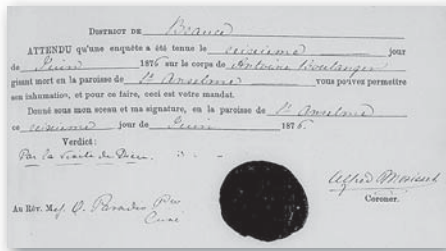 DISTRICT DE Beauce
ATTENDU qu'une enquête a été tenue le seizieme jour
de Juin 1876 sur le corps de Antoine Boulanger
gisant mort en la paroisse de St Anselme vous pouvez permettre
son inhumation, et pour ce faire, ceci est votre mandat.
Donné sous mon sceau et ma signature, en la paroisse de St Anselme
ce seizieme jour de Juin 1876.
Verdict:
Par la visite de Dieu.
Alfred Morisset
Coroner.
Au Rév. Mes. O. Paradis Ptre
Curé